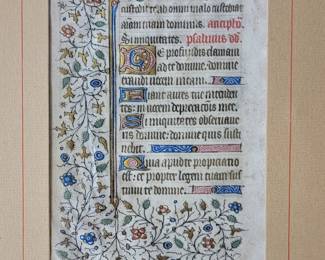 custodit te ab omni malo custodiat
animam tuam dominus.
Si iniquitates. psalmus dd.
De profundis clamavi
ad te domine: domine
exaudi vocem meam.
Fiant aures tue intenden
tes: in vocem deprecationis mee.
Si iniquitates observave
ris domine: domine quis susti
nebit.
Quia apud te propiciatio
est: et propter legem tuam sus
tinui te domine.